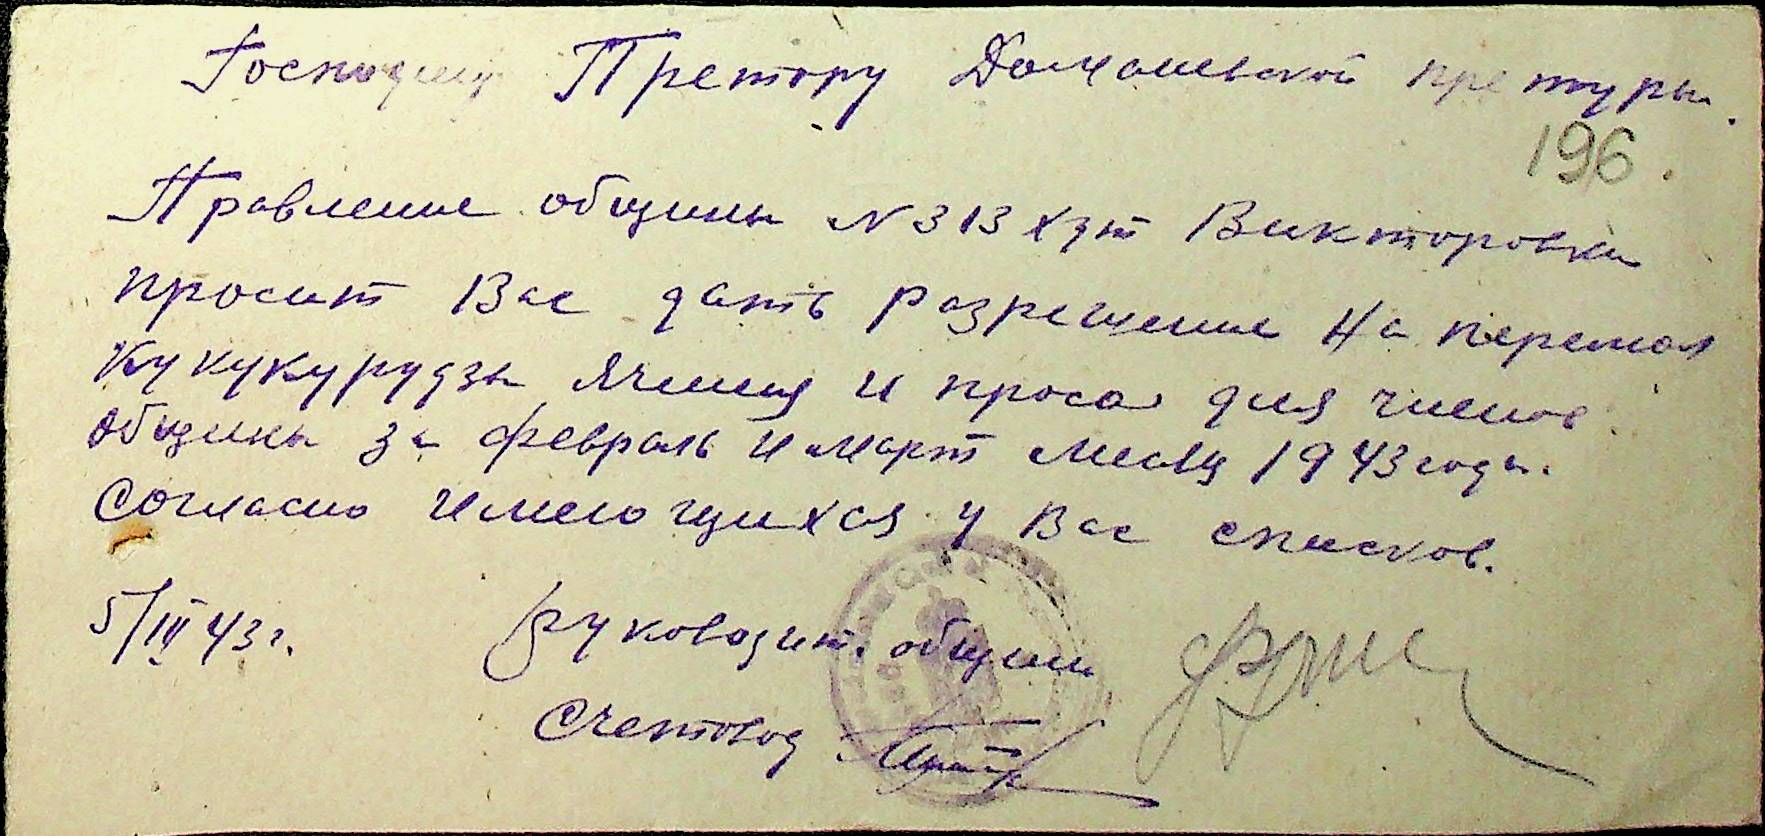 Господину Претору Домашевской претуры.
196.
Правление общины N 313 хут Викторовки
просит Вас дать разрешение на перемол
Кукукурудзы Ячменя и проса для членов
общины за февраль и март месяц 1943 годы.
Согласно имеющихся у Вас списков.
5/III 43 г.
руководит. общины
Счетовод